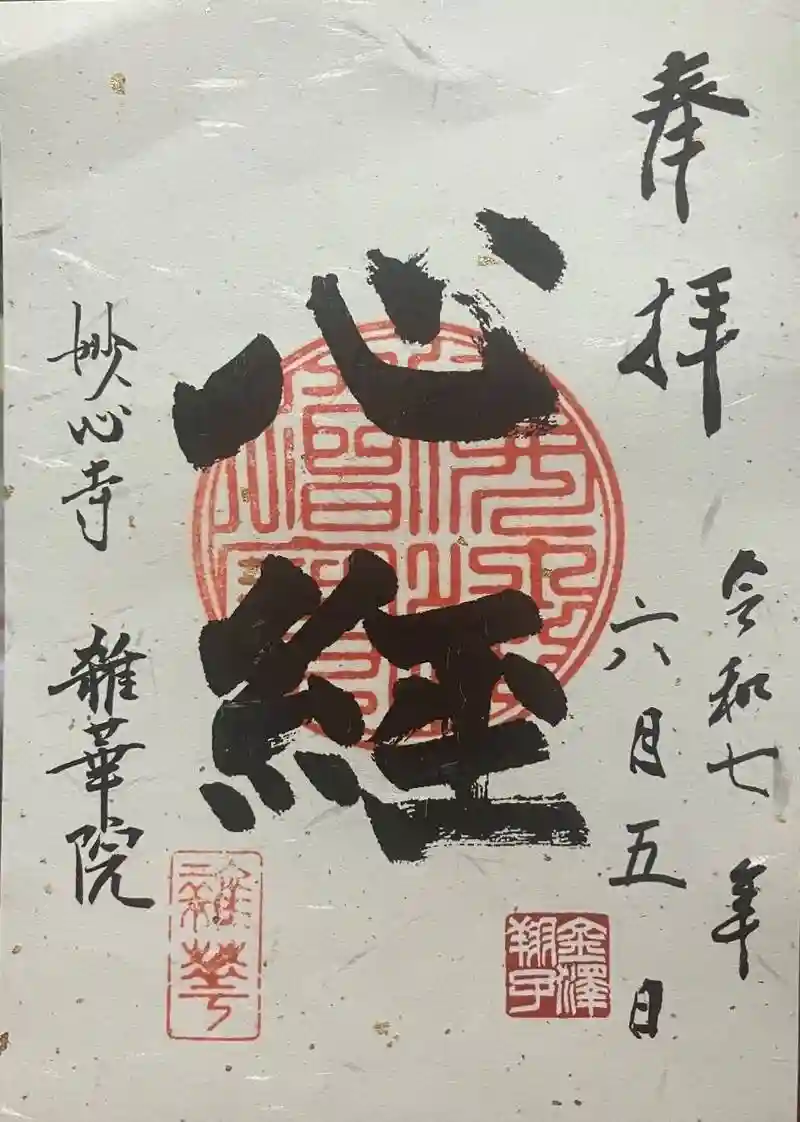 奉拝
令和七年
六月五日
心経
妙心寺 雑華院
金澤
翔子
雑華